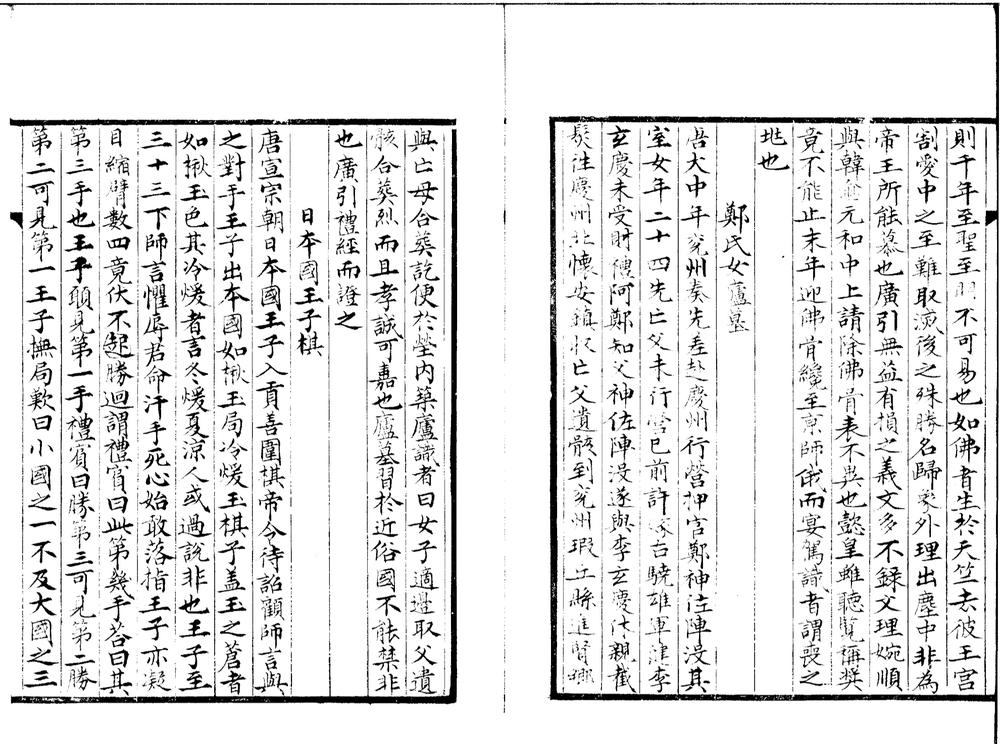 則千年至聖至明不可易也如佛者生於天竺去彼王宮
割愛中之至難取滅後之殊勝名歸象外理出塵中非為
帝王所能慕也廣引無益有損之義文多不錄文理婉順
與韓愈元和中上請除佛骨表不異也懿皇雖聽覽稱獎
竟不能止末年迎佛骨纔至京師俄而晏駕識者謂喪之
兆也
鄭氏女廬墓
唐大中年兗州奏先差赴慶州行營押官鄭神佐陣沒其
室女年二十四先亡父未行營已前許嫁右驍雄軍健李
玄慶未受財禮阿鄭知父神佐陣沒遂與李玄慶休親截
髮往慶州北懷安鎮收亡父遺骸到兗州瑕丘縣進賢鄉
與亡母合葬訖便於塋內築廬識者曰女子適邊取父遺
骸合葬烈而且孝誠可嘉也廬墓習於近俗國不能禁非
也廣引禮經而證之
日本國王子棋
唐宣宗朝日本國王子入貢善圍棋帝令待詔顧師言與
之對手王子出本國如楸玉局冷煖玉棋子蓋玉之蒼者
如楸玉色其冷煖者言冬煖夏涼人或過說非也王子至
三十三下師言懼辱君命汗手死心始敢落指王子亦凝
目縮臂數四竟伏不起勝迴謂禮賓曰此第幾手荅曰其
第三手也王子願見第一手禮賓曰勝第三可見第二勝
第二可見第一王子撫局歎曰小國之一不及大國之三